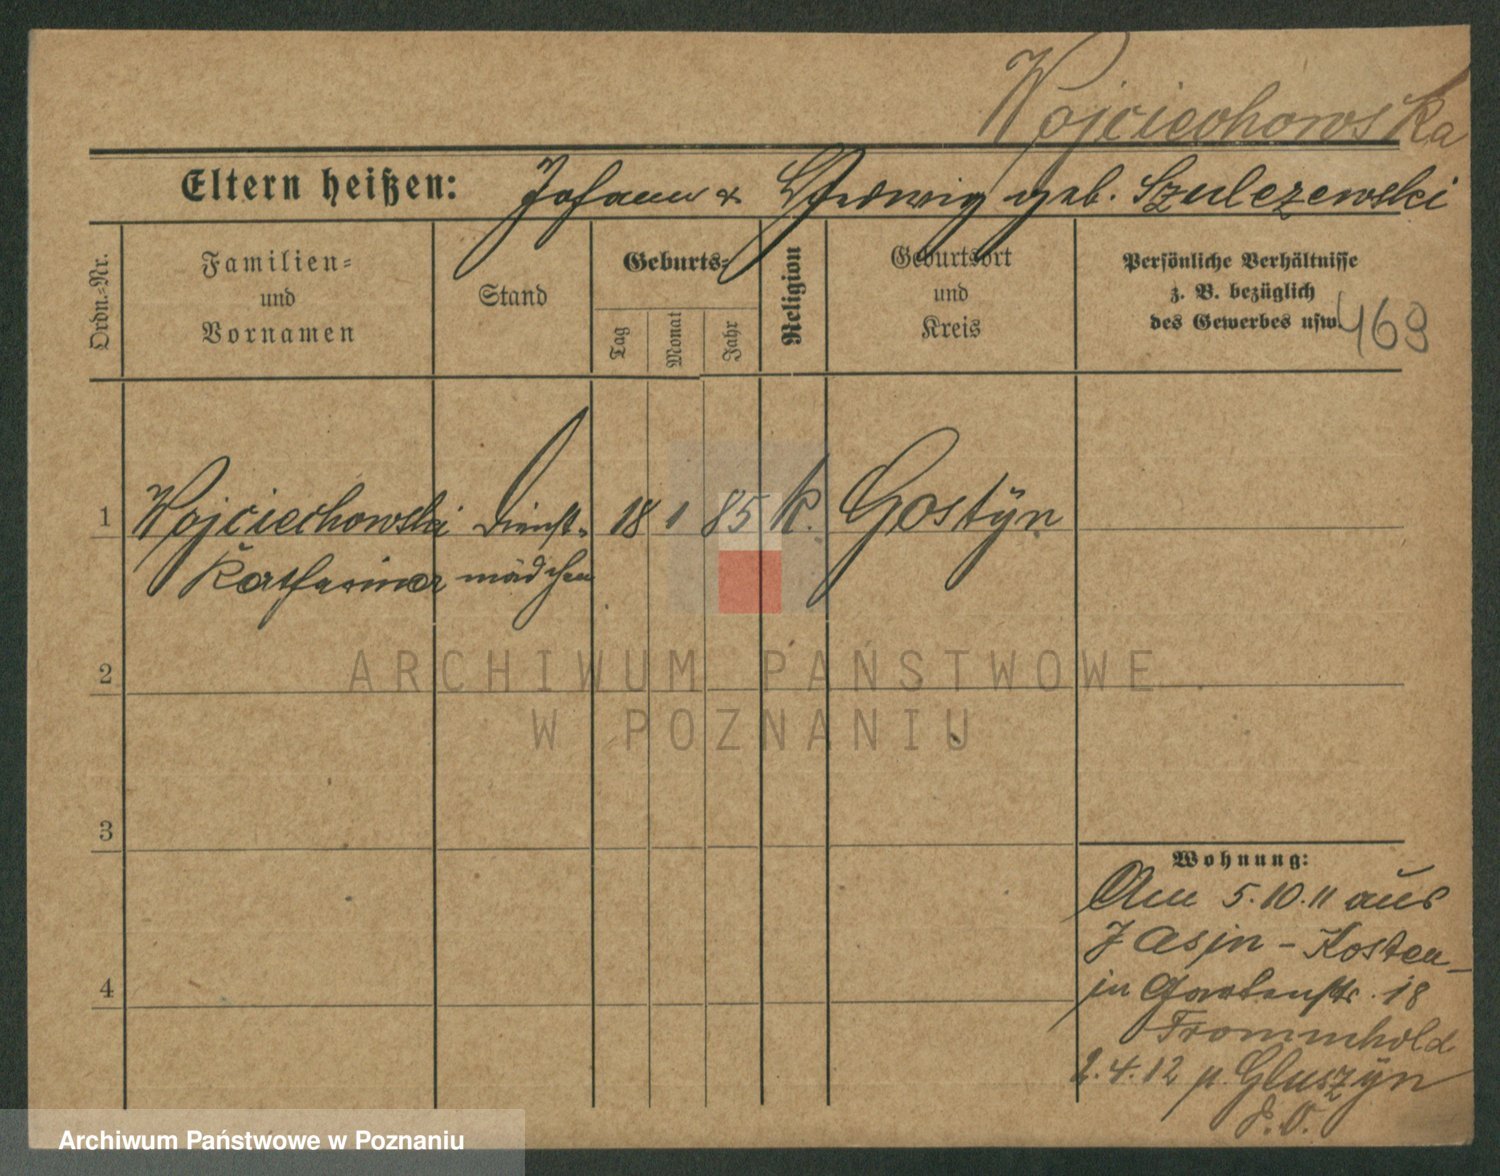 Wojciechowska
Eltern heißen: Johann & Ludwig geb. Szulczewski
Ordn.-Nr.
Familien-
und
Vornamen
Stand
Geburts-
Tag
Monat
Jahr
Religion
Geburtsort
und
Kreis
Persönliche Verhältnisse
z. B. bezüglich
des Gewerbes usw.
469
1 Wojciechowski Dienst- 18 1 85 k. Gostÿn
Katharina mädchen
2
ARCHIWUM PAŃSTWOWE
W POZNANIU
3
Wohnung:
Am 5.10.11 aus
Jasin - Kosten
4
in Gartenstr. 18
Frommhold
2.4.12 p. Gluszÿn
Archiwum Państwowe w Poznaniu